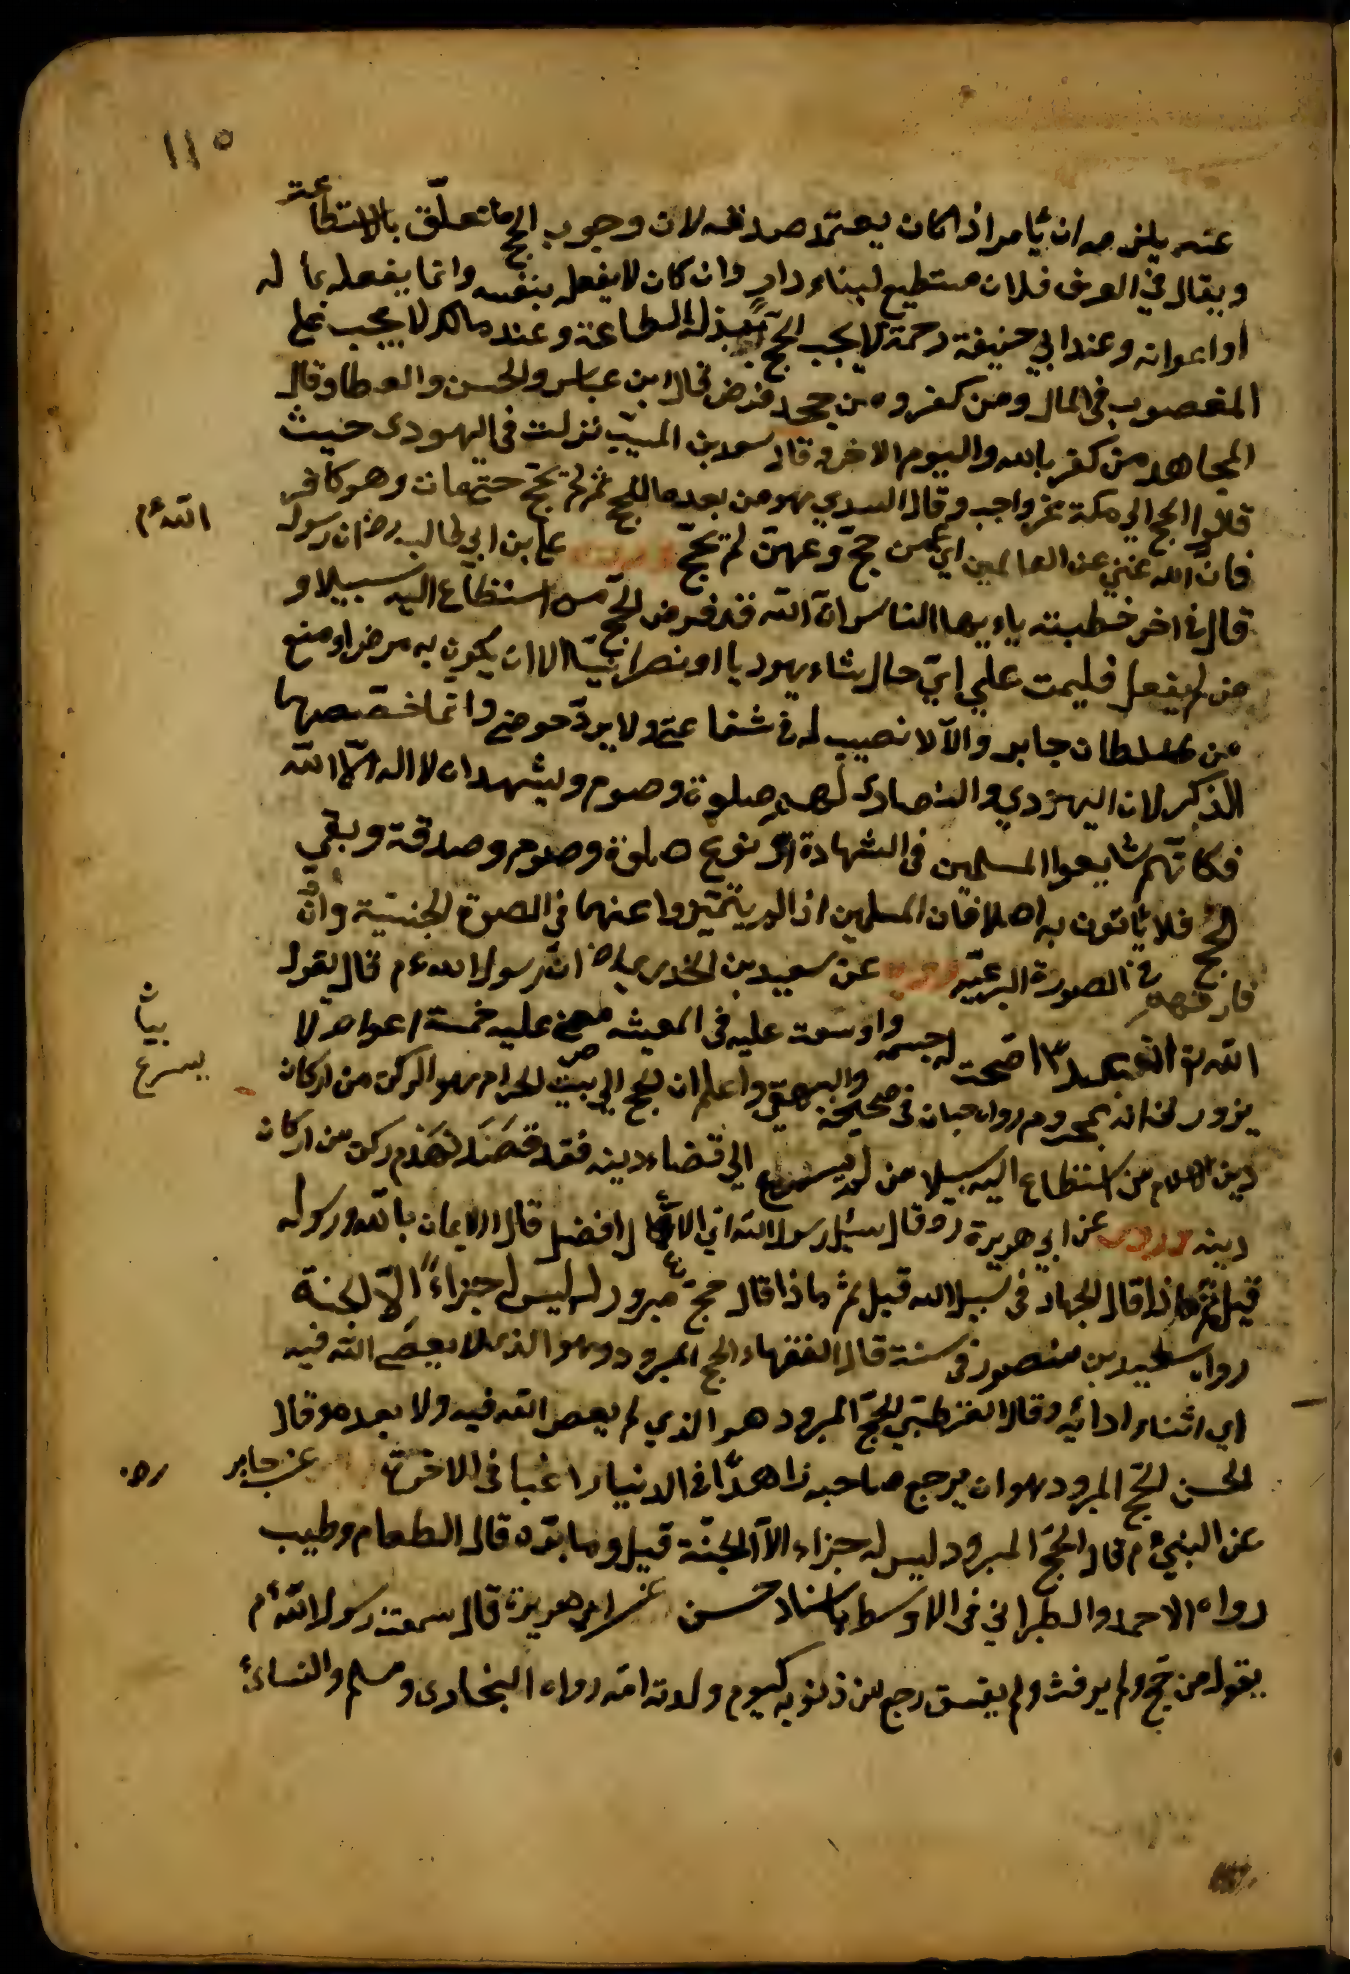 ١١٥
عنه يلزمه ان يأمر اذا كان يعتمد صدقه لان وجوب الحج ما تعلق بالاستطاعة
ويقال في العرف فلان مستطيع لبناء دار وان كان لا يفعل بنفسه وانما يفعله بماله
او اعوانه وعند ابي حنيفة رحمة لا يجب الحج ببذل الطاعة وعند مالك لا يجب على
المغصوب في المال ومن كفر ومن جحد فرض قال ابن عباس والحسن والعطا وقال
المجاهد من كفر بالله واليوم الاخر وقال سعد بن المسيب نزلت في اليهودى حيث
قالوا الحج الي مكة غير واجب وقال السدي هو من بعد ما لم يحج حتى مات وهو كافر
فان الله غني عن العالمين اي عمن حج وعمن لم يحج علي بن ابي طالب رض ان رسول
اللهءم
قال في اخر خطبته يا ايها الناس ان الله قد فرض الحج من استطاع اليه سبيلا و
من لم يفعل فليمت علي اي حال شاء يهوديا او نصرانيا الا ان يكون به مرض او منع
من سلطان جابر والا لا نصيب له في شفاعتي ولا يرد حوضي وانما خصصهما
الذكر لان اليهودي والنصارى لهم صلوة وصوم ويشهدان لا اله الا الله
فكانهم شايعوا المسلمين في الشهادة او نوع صلوة وصوم وصدقة وبقي
الحج فلا يأتون به اصلا فان المسلمين اذا لم يتميزوا عنهما في الصوة الجنسية وان
فارقهم في الصورة عن سعيد بن الخدري رض ان رسول الله ءم قال يقول
الله اصحت له جسمه واوسعت عليه في المعيشه عليه خمسة اعوام لا
بيان
يزور لمحروم رواه حبان في صحيحه والبيهقي واعلم ان الحج الي بيت الحرام هو الركن من اركان
يسرع
دين الاسلام من استطاع اليه سبيلا من لم يسرع الي قضاء دينه فقد قصد لهدم ركن من اركان
دينه عن ابي هريرة رض وقال سئل رسول الله اي الاعمال افضل قال الايمان بالله ورسوله
قيل ثم ماذا قال الجهاد في سبيل الله قيل ثم ماذا قال حج مبرور له ليس له جزاء الا الجنة
رواه سعيد بن منصور في سننه قال الفقهاء الحج المبرور وهو الذي لا يعصي الله فيه
اي اثناء ادائه وقال القرطبي الحج المبرور هو الذي لم يعص الله فيه ولا بعده وقال
الحسن الحج المبرور هو ان يرجع صاحبه زاهدا في الدنيا راغبا في الاخرة عن جابر رض
عن النبيءم قال الحج المبرور ليس له جزاء الا الجنة قيل وما بره قال الطعام وطيب
رواه الاحمد والطبراني في الاوسط باسناد حسن عن ابي هريرة قال سمعت رسول اللهءم
يقول من حج ولم يرفث ولم يفسق رجع من ذنوبه كيوم ولدته امه رواه البخارى ومسلم والنسائ